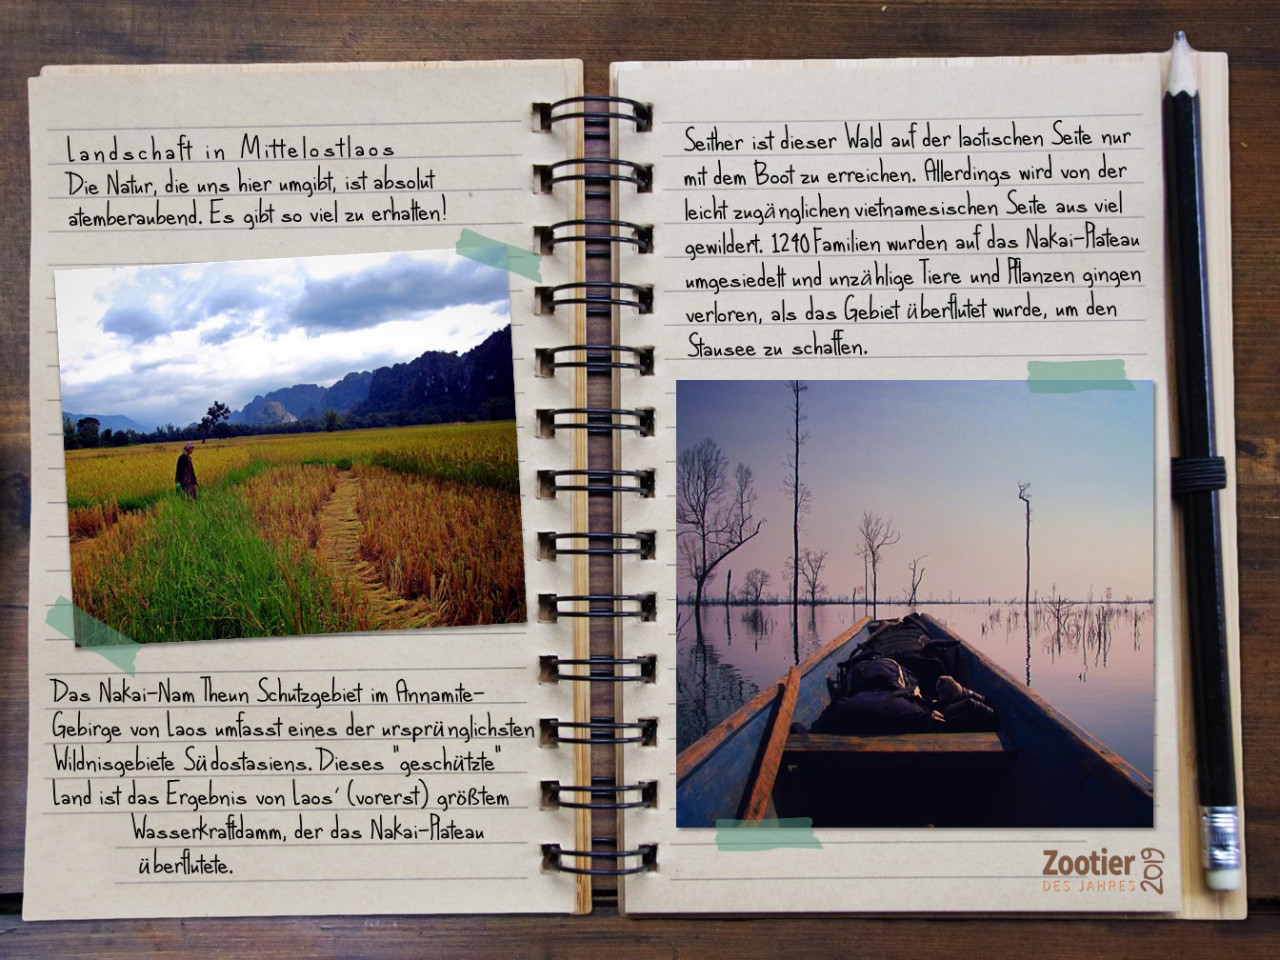 Landschaft in Mittelostlaos
Die Natur, die uns hier umgibt, ist absolut
atemberaubend. Es gibt so viel zu erhalten!
Das Nakai-Nam Theun Schutzgebiet im Annamite-
Gebirge von Laos umfasst eines der ursprünglichsten
Wildnisgebiete Südostasiens. Dieses "geschützte"
Land ist das Ergebnis von Laos' (vorerst) größtem
Wasserkraftdamm, der das Nakai-Plateau
überflutete.
Seither ist dieser Wald auf der laotischen Seite nur
mit dem Boot zu erreichen. Allerdings wird von der
leicht zugänglichen vietnamesischen Seite aus viel
gewildert. 1240 Familien wurden auf das Nakai-Plateau
umgesiedelt und unzählige Tiere und Pflanzen gingen
verloren, als das Gebiet überflutet wurde, um den
Stausee zu schaffen.
Zootier
DES JAHRES
2019